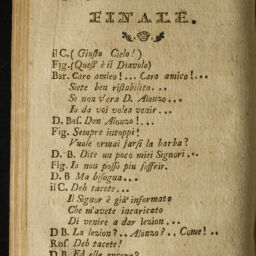 FINALE.
il C. ( Giuſto Cielo! )
Fig. (Queſt' è il Diavolo)
Bar. Caro amico!... Caro amico!...
Siete ben riſtabilito...
Se non v'era D. Alonzo...
Io da voi volea venir...
D. Baſ. Don Alonzo!...
Fig. Sempre intoppi!
Vuole ormai farſi la barba?
D. B. Dite un poco miei Signori...
Fig. Io non poſſo piu ſoffrir.
D. B Ma biſogna...
il C. Deh tacete...
Il Signor è già informato
Che m'avete incaricato
Di venire a dar lezion...
D B. La lezion?.. Alonzo?.. Come!..
Roſ Deh tacete!
D B. Ed ella ancora?